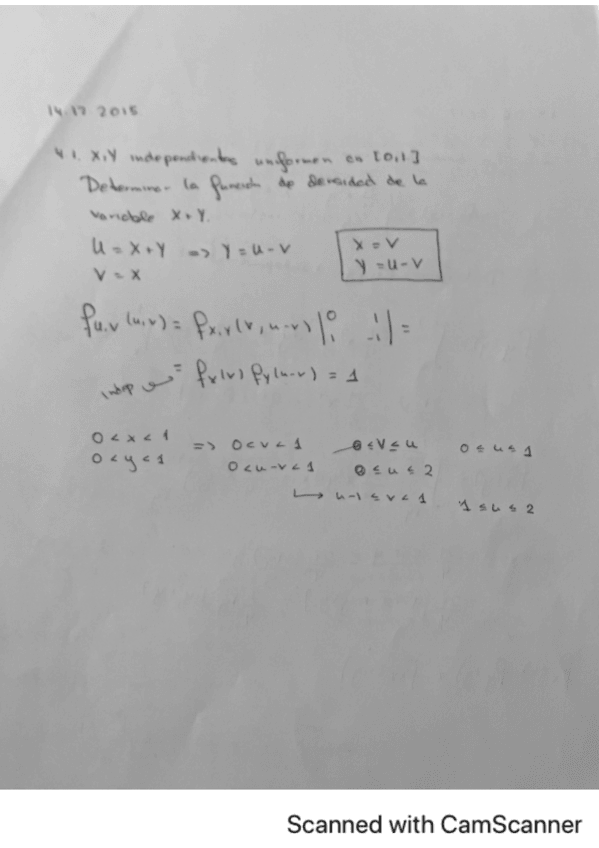 14.17 2015
4 1. X,Y independientes uniformen en [0,1]
Determina- la función de densidad de la
variable X+Y.
U = X+Y => Y = U-V
V = X
X = V
Y = U-V
f_{U,V}(u,v) = f_{X,Y}(v, u-v) |0 1
1 -1| =
indep = f_X(v) f_Y(u-v) = 1
0 < x < 1 => 0 < v < 1 0 ≤ v ≤ u 0 ≤ u ≤ 1
0 < y < 1 0 < u-v < 1 0 ≤ u ≤ 2
↳ u-1 ≤ v < 1 1 ≤ u ≤ 2
Scanned with CamScanner